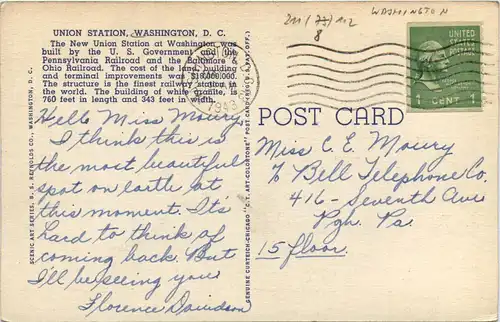 UNION STATION, WASHINGTON, D. C.
The New Union Station at Washington was
built by the U. S. Government and the
Pennsylvania Railroad and the Baltimore &
Ohio Railroad. The cost of the land, building
and terminal improvements was $18,000,000.
The structure is the finest railway station in
the world. The building of white granite, is
760 feet in length and 343 feet in width.
Hello Miss Moury,
I think this is
the most beautiful
spot on earth at
this moment. It's
hard to think of
coming back. But
I'll be seeing you
Florence Davidson
SCENIC ART SERIES, B. S. REYNOLDS CO., WASHINGTON, D. C.
GENUINE CURTEICH-CHICAGO "C.T. ART-COLORTONE" POST CARD
1943
211 (73) 112
8
WASHINGTON
UNITED
STATES
POSTAGE
1 CENT 1
POST CARD
Miss C. E. Moury
c/o Bell Telephone Co.
416 - Seventh Ave
Pgh. Pa.
15 floor.